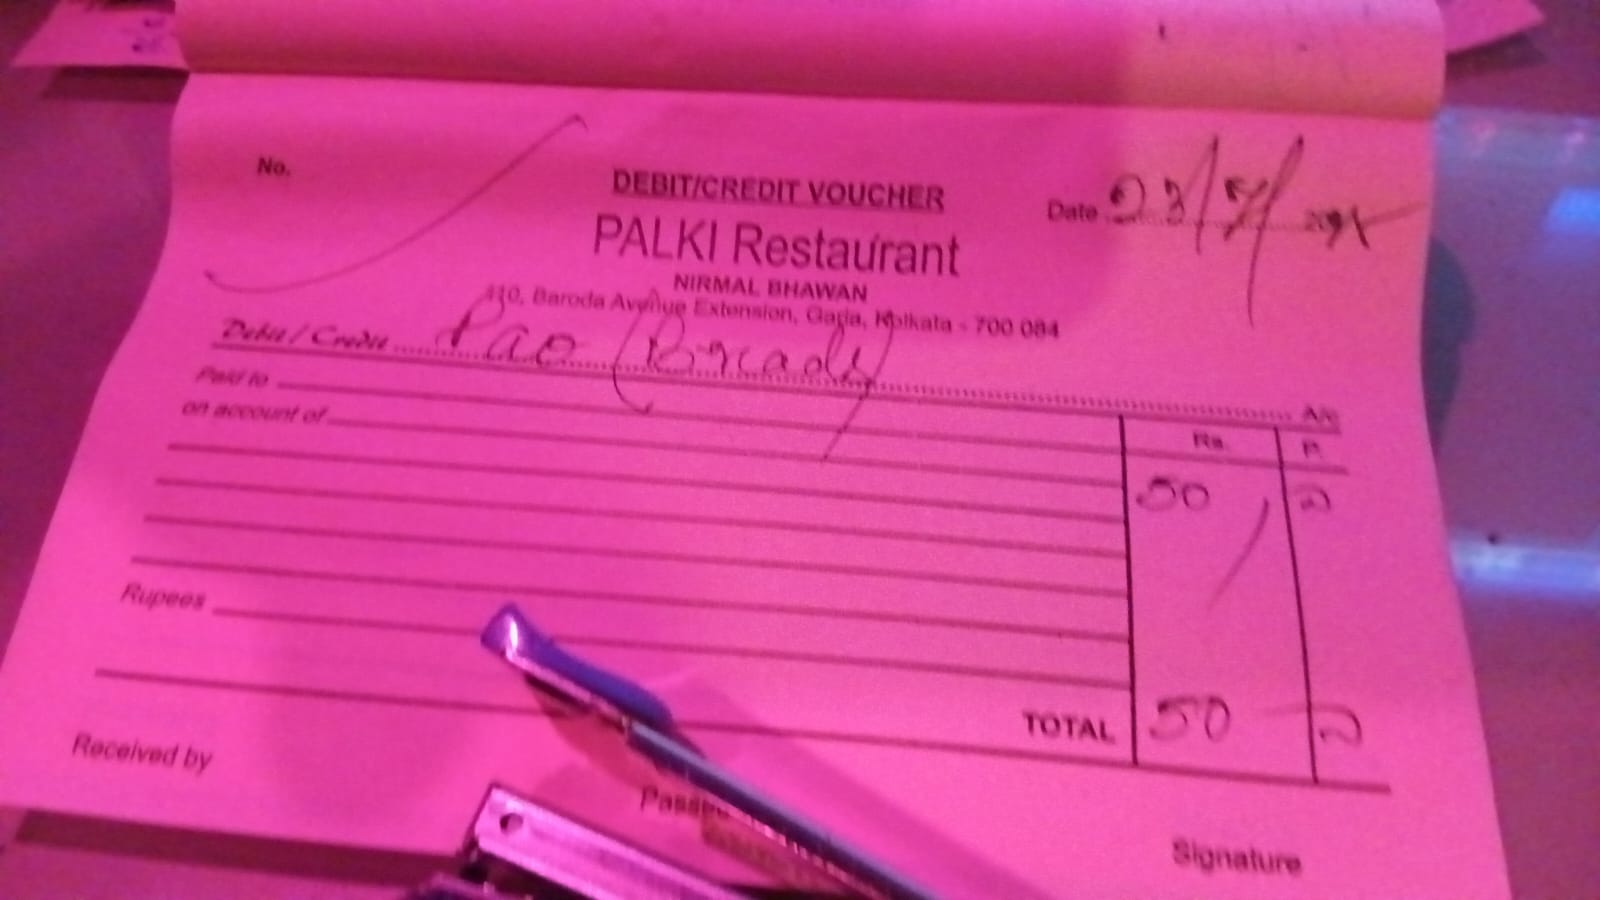 No.
DEBIT/CREDIT VOUCHER
Date 23/
PALKI Restaurant
NIRMAL BHAWAN
Baroda Avenue Extension, Garia, Kolkata - 700 084
Debit / Credit Pao (Bread) A/c
Paid to
on account of
Rs. P.
50
Rupees
TOTAL 50
Received by
Signature